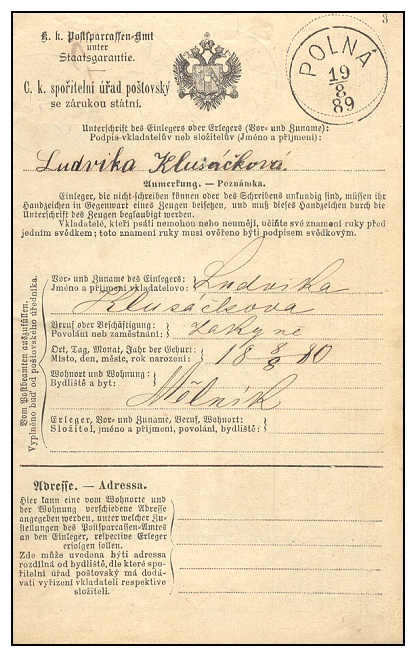 3
K. k. Postsparcassen-Amt
unter
Staatsgarantie.
C. k. spořitelní úřad poštovský
se zárukou státní.
POLNÁ
19
8
89
Unterschrift des Einlegers oder Erlegers (Vor- und Zuname):
Podpis vkladatelův neb složitelův (Jméno a příjmení):
Ludvika Klusáčková.
Anmerkung. — Poznámka.
Einleger, die nicht schreiben können oder des Schreibens unkundig sind, müssen ihr
Handzeichen in Gegenwart eines Zeugen beisetzen, und muß dieses Handzeichen durch die
Unterschrift des Zeugen beglaubigt werden.
Vkladatelé, kteří psáti nemohou nebo neumějí, učiňte své znamení ruky před
jedním svědkem; toto znamení ruky musí ověřeno býti podpisem svědkovým.
Vom Postbeamten auszufüllen.
Vyplněno buď od poštovského úředníka.
Vor- und Zuname des Einlegers:
Jméno a příjmení vkladatelovo:
Ludvika
Klusáčkova
Beruf oder Beschäftigung:
Povolání neb zaměstnání:
žákyně
Ort, Tag, Monat, Jahr der Geburt:
Místo, den, měsíc, rok narození:
18 8/8 80
Wohnort und Wohnung:
Bydliště a byt:
Mělník
Erleger, Vor- und Zuname, Beruf, Wohnort:
Složitel, jméno a příjmení, povolání, bydliště:
Adresse. — Adressa.
Hier kann eine vom Wohnorte und
der Wohnung verschiedene Adresse
angegeben werden, unter welcher Zu-
stellungen des Postsparcassen-Amtes
an den Einleger, respective Erleger
erfolgen sollen.
Zde může uvedena býti adressa
rozdílná od bydliště, dle které spo-
řitelní úřad poštovský má dodá-
vati vyřízení vkladateli respektive
složiteli.